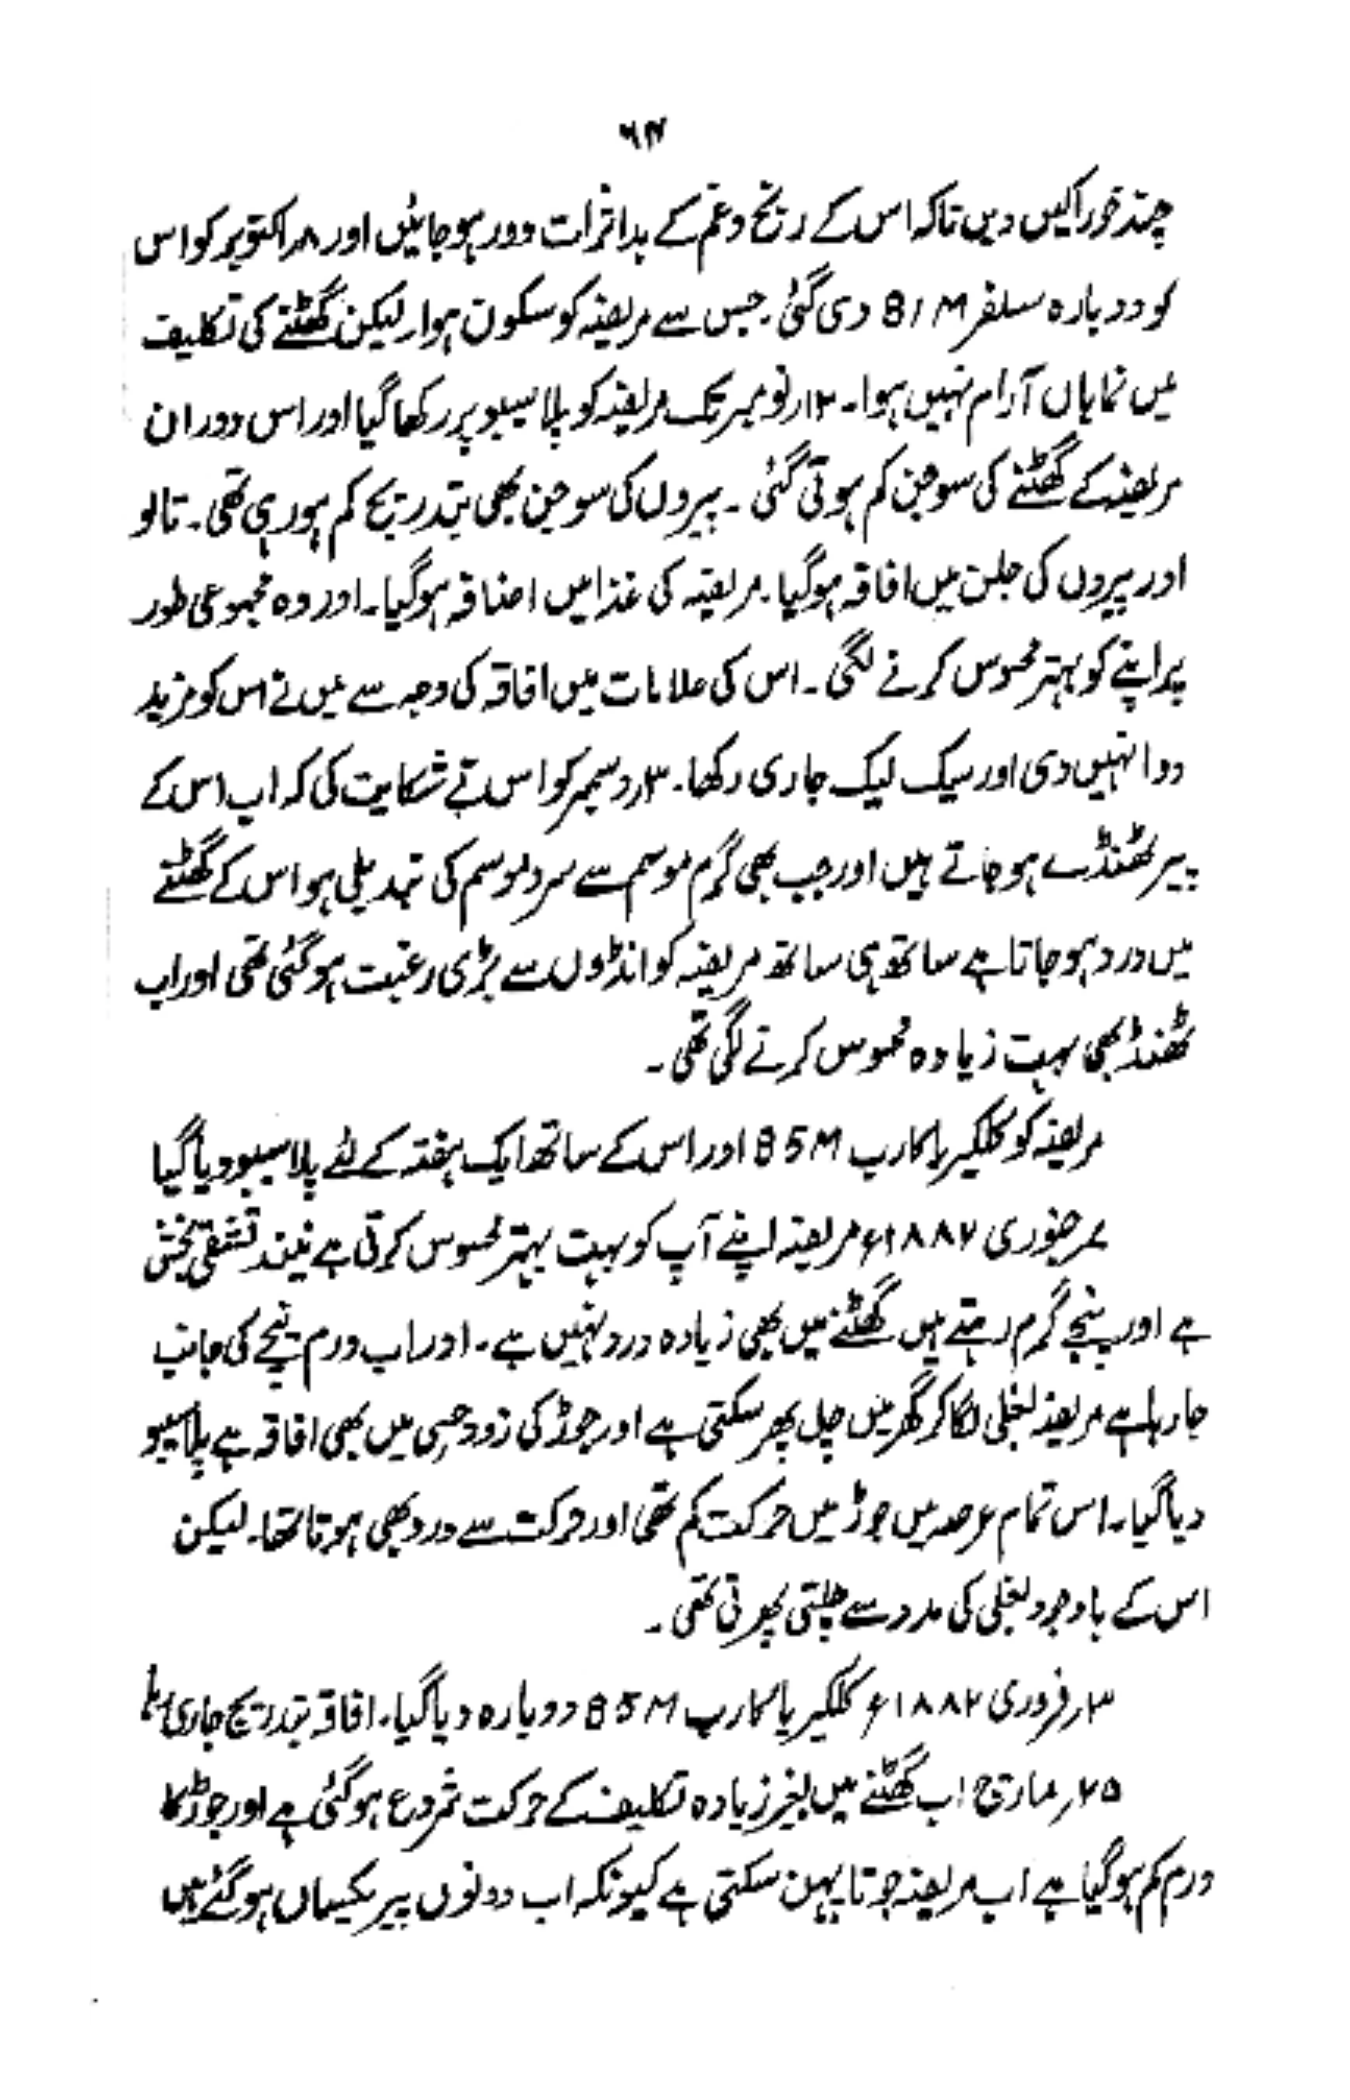 ۶۴
چند خوراکیں دیں تاکہ اس کے رنج و غم کے بد اثرات دور ہو جائیں اور ۸ر اکتوبر کو اس
کو دوبارہ سلفر 81M دی گئی۔ جس سے مریضہ کو سکون ہوا۔ لیکن گھٹنے کی تکلیف
میں نمایاں آرام نہیں ہوا۔ ۱۲ر نومبر تک مریضہ کو پلاسیبو پر رکھا گیا اور اس دوران
مریضہ کے گھٹنے کی سوجن کم ہوتی گئی ۔ پیروں کی سوجن بھی بتدریج کم ہو رہی تھی۔ تالو
اور پیروں کی جلن میں افاقہ ہو گیا۔ مریضہ کی غذا میں اضافہ ہو گیا۔ اور وہ مجموعی طور
پر اپنے کو بہتر محسوس کرنے لگی ۔ اس کی علامات میں افاقہ کی وجہ سے میں نے اس کو مزید
دوا نہیں دی اور سیک لیک جاری رکھا۔ ۳ر دسمبر کو اس نے شکایت کی کہ اب اس کے
پیر ٹھنڈے ہو جاتے ہیں اور جب بھی گرم موسم سے سرد موسم کی تبدیلی ہو اس کے گھٹنے
میں درد ہو جاتا ہے ساتھ ہی ساتھ مریضہ کو انڈوں سے بڑی رغبت ہو گئی تھی اور اب
ٹھنڈ بھی بہت زیادہ محسوس کرنے لگی تھی ۔
مریضہ کو کلکیریا کارب 85M اور اس کے ساتھ ایک ہفتہ کے لئے پلاسیبو دیا گیا
جنوری ۱۸۸۷ء مریضہ اپنے آپ کو بہت بہتر محسوس کرتی ہے نیند تشفی بخش
ہے اور پنجے گرم رہتے ہیں گھٹنے میں بھی زیادہ درد نہیں ہے۔ اور اب ورم نیچے کی جانب
جا رہا ہے مریضہ بغلی لگا کر گھر میں چل پھر سکتی ہے اور جوڑ کی زود حسی میں بھی افاقہ ہے پلاسیبو
دیا گیا۔ اس تمام عرصہ میں جوڑ میں حرکت کم تھی اور حرکت سے درد بھی ہوتا تھا۔ لیکن
اس کے باوجود بغلی کی مدد سے چلتی پھرتی تھی ۔
۳ر فروری ۱۸۸۷ء کلکیریا کارب 85M دوبارہ دیا گیا۔ افاقہ بتدریج جاری رہا
۲۵ر مارچ اب گھٹنے میں بغیر زیادہ تکلیف کے حرکت شروع ہو گئی ہے اور جوڑ کا
ورم کم ہو گیا ہے اب مریضہ جوتا پہن سکتی ہے کیونکہ اب دونوں پیر یکساں ہو گئے ہیں